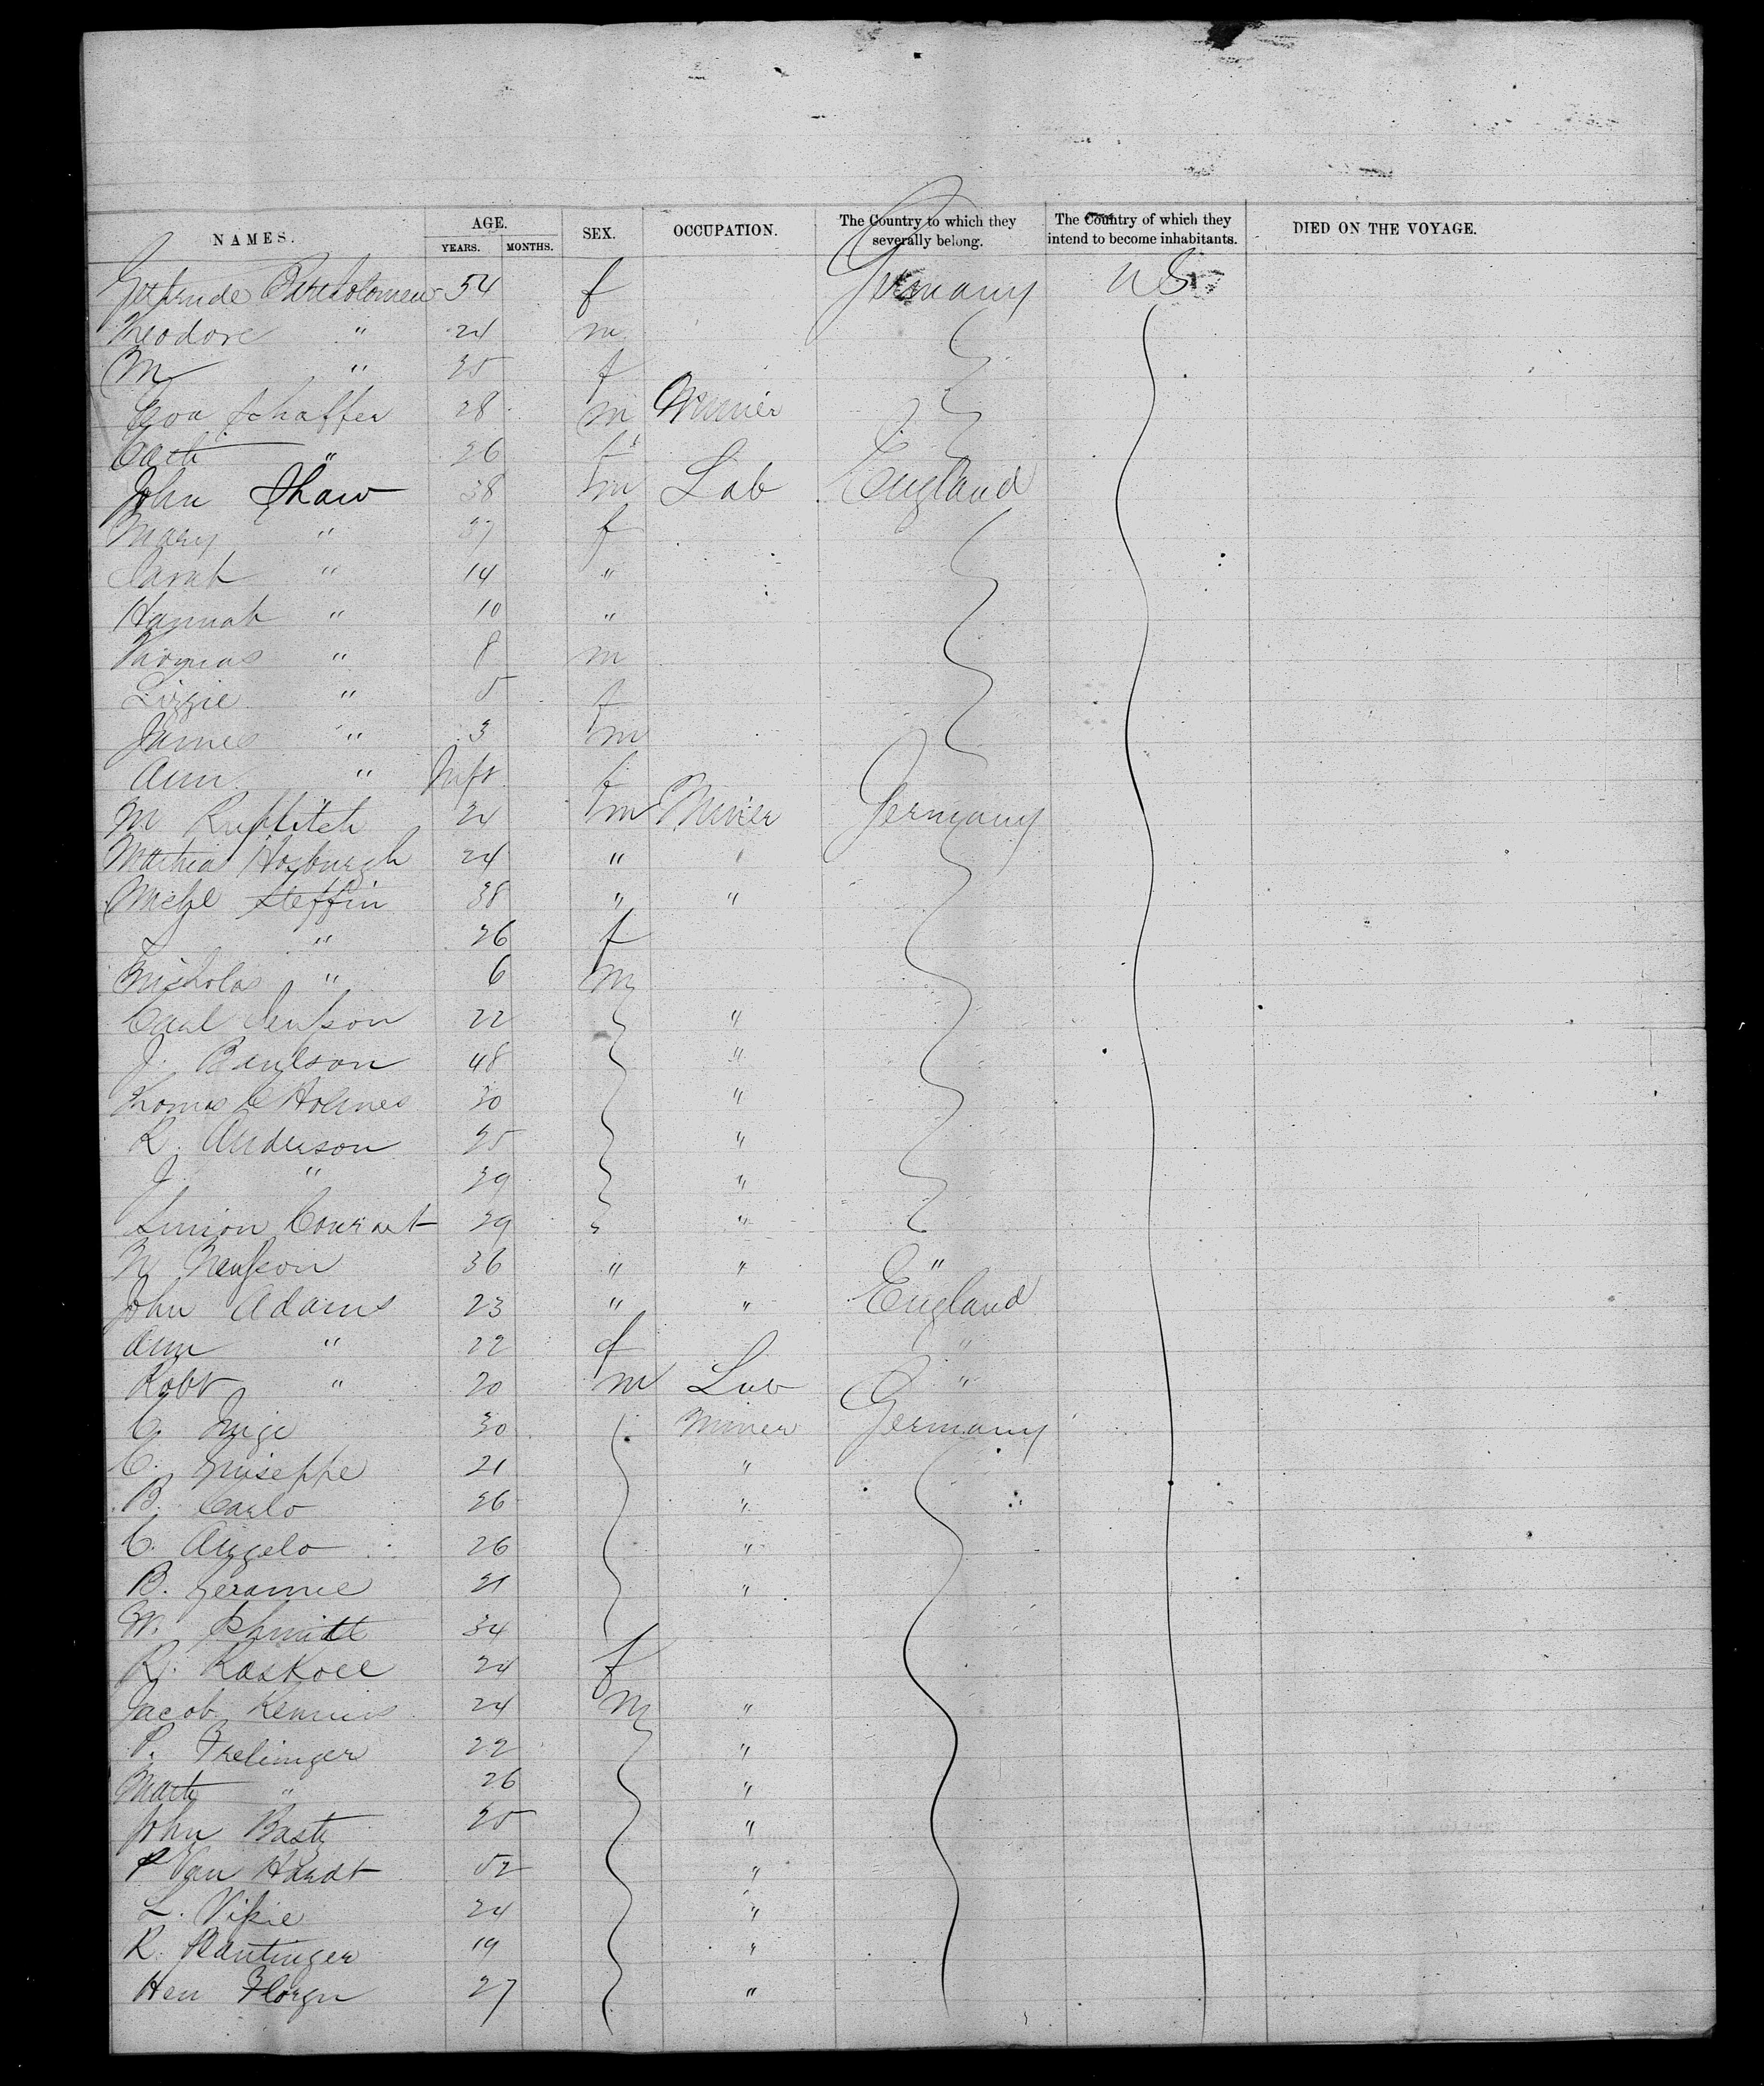 NAMES. AGE. YEARS. MONTHS. SEX. OCCUPATION. The Country to which they severally belong. The Country of which they intend to become inhabitants. DIED ON THE VOYAGE.
Gertrude Bartholomew 54 f Germany U S
Theodore " 24 m
M " 25 f
Schaffer 28 m Minier
Cath " 26 f
John Shaw 38 m Lab England
Mary " 37 f
Sarah " 14 "
Hannah " 10 "
Thomas " 8 m
Lizzie " 5 f
James " 3 m
Ann " Inft f
M 24 m Miner Germany
Mathias 24 " "
Michl Steffin 38 " "
" 26 f
Nicholas " 6 m
Carl 22 "
J. 48 "
Thomas C Holmes 30 "
R. Anderson 25 "
J. " 29 "
Simon 29 "
N 36 " " "
John Adams 23 " " England
Ann " 22 f "
Robt " 20 m Lab "
C. 30 Miner Germany
C. Guiseppe 21 "
B. Carlo 26 "
C. Angelo 26 "
B. 21 "
W. Schmidt 34
R. Raskoll 24 f
Jacob 24 m "
P. Frelinger 22 "
Math " 26 "
John Basty 25 "
P Van Hardt 52 "
L. 24 "
R. Plantinger 19 "
Hen Florgn 27 "